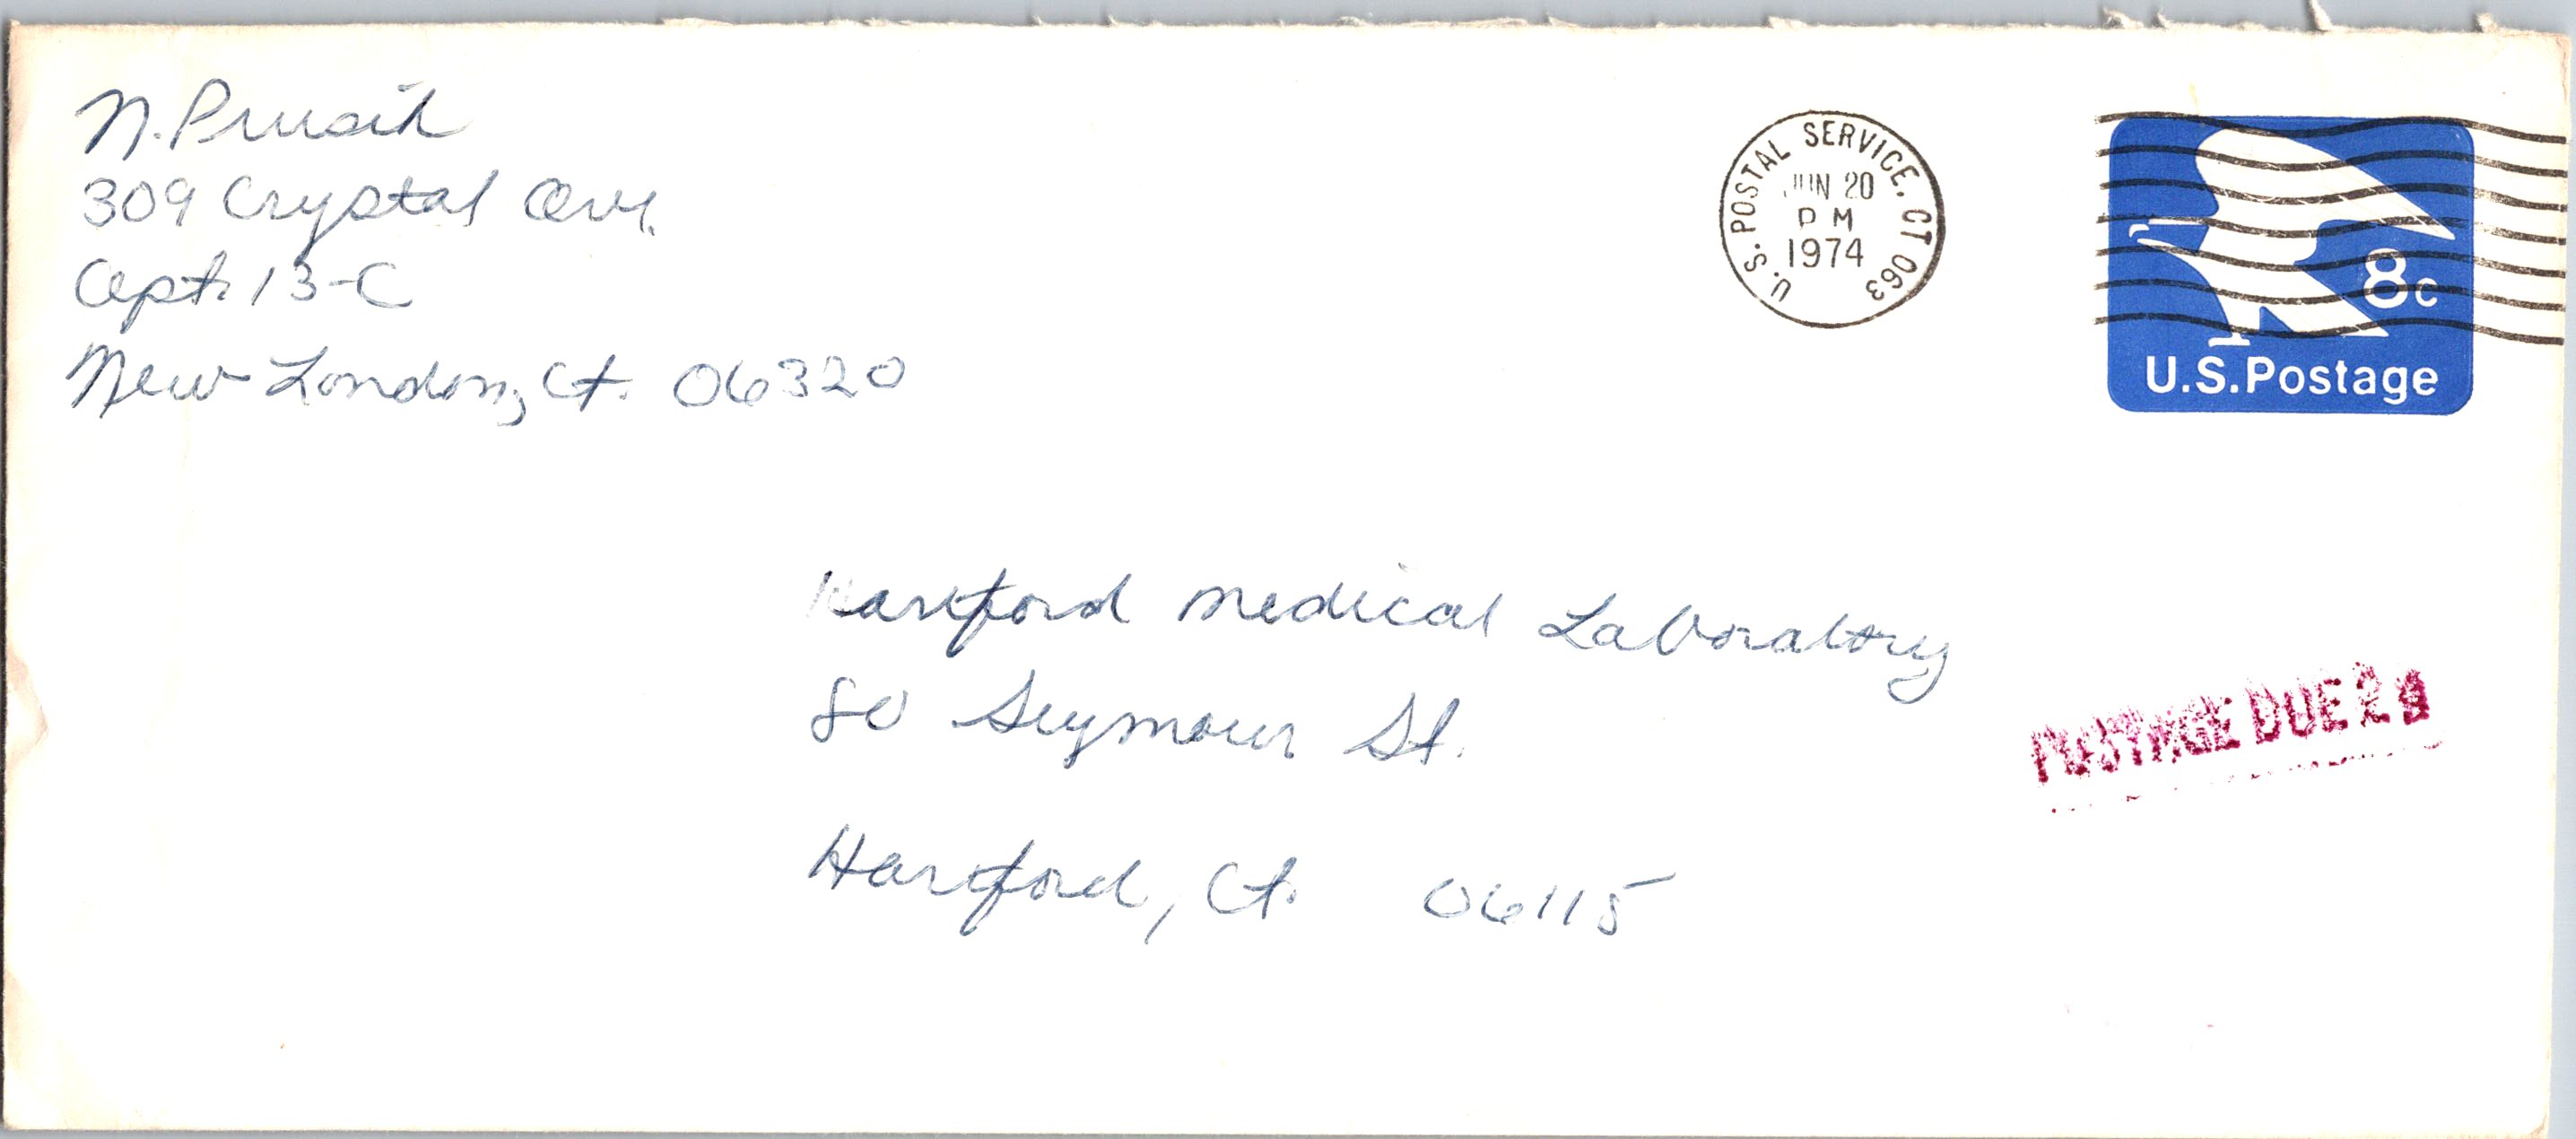 N. Prusik
309 Crystal Ave.
Apt. 13-C
New London, Ct. 06320
U. S. POSTAL SERVICE, CT 063
JUN 20
PM
1974
8c
U.S. Postage
Hartford Medical Laboratory
80 Seymour St.
Hartford, Ct. 06115
POSTAGE DUE 2¢